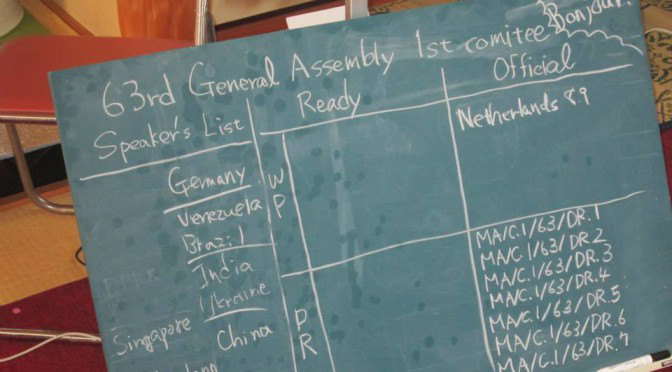 63rd General Assembly 1st comitee Bonjour.
Speaker's List
Ready
Official
Germany
Venezuela
Brazil
India
Ukraine
Singapore China
WP
DR
Netherlands 89
MA/C.1/63/DR.1
MA/C.1/63/DR.2
MA/C.1/63/DR.3
MA/C.1/63/DR.4
MA/C.1/63/DR.5
MA/C.1/63/DR.6
MA/C.1/63/DR.7